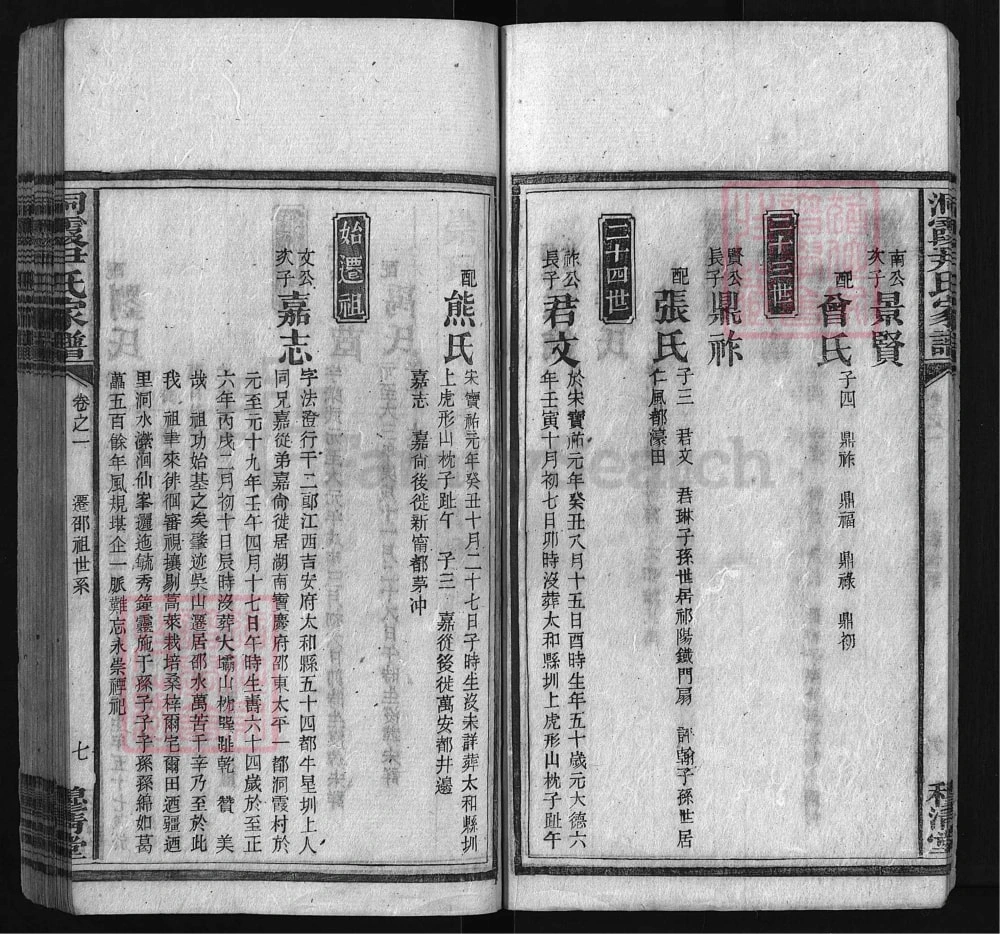 洞霞尹氏家譜
南公
次子
景賢
配
曾氏
子四　鼎祚　鼎福　鼎祿　鼎初
二十三世
賢公
長子
鼎祚
配
張氏
子三　君文　君琳子孫世居祁陽鐵門扇　詩翰子孫世居
仁風都濠田
二十四世
祚公
長子
君文
於宋寶祐元年癸丑八月十五日酉時生年五十歲元大德六
年壬寅十月初七日卯時沒葬太和縣圳上虎形山枕子趾午
FamilySearch
配
熊氏
宋寶祐元年癸丑十月二十七日子時生沒未詳葬太和縣圳
上虎形山枕子趾午　子三　嘉從後徙萬安都井邊
嘉志　嘉尙後徙新甯都茅冲
始遷祖
文公
次子
嘉志
字法澄行千二郎江西吉安府太和縣五十四都牛星圳上人
同兄嘉從弟嘉尙徙居湖南寶慶府邵東太平一都洞霞村於
元至元十九年壬午四月十七日午時生壽六十四歲於至正
六年丙戌二月初十日辰時沒葬大壩山枕巽趾乾　贊　美
哉　祖功始基之矣肇迹吳山遷居邵水萬苦千辛乃至於此
我　祖聿來徘徊審視攘剔蒿萊栽培桑梓爾宅爾田迺疆迺
里洞水瀠洄仙峯邐迤毓秀鐘靈施于孫子子子孫孫綿如葛
藟五百餘年風規堪企一脈難忘永崇禋祀
洞霞尹氏家譜
卷之一
遷邵祖世系
七